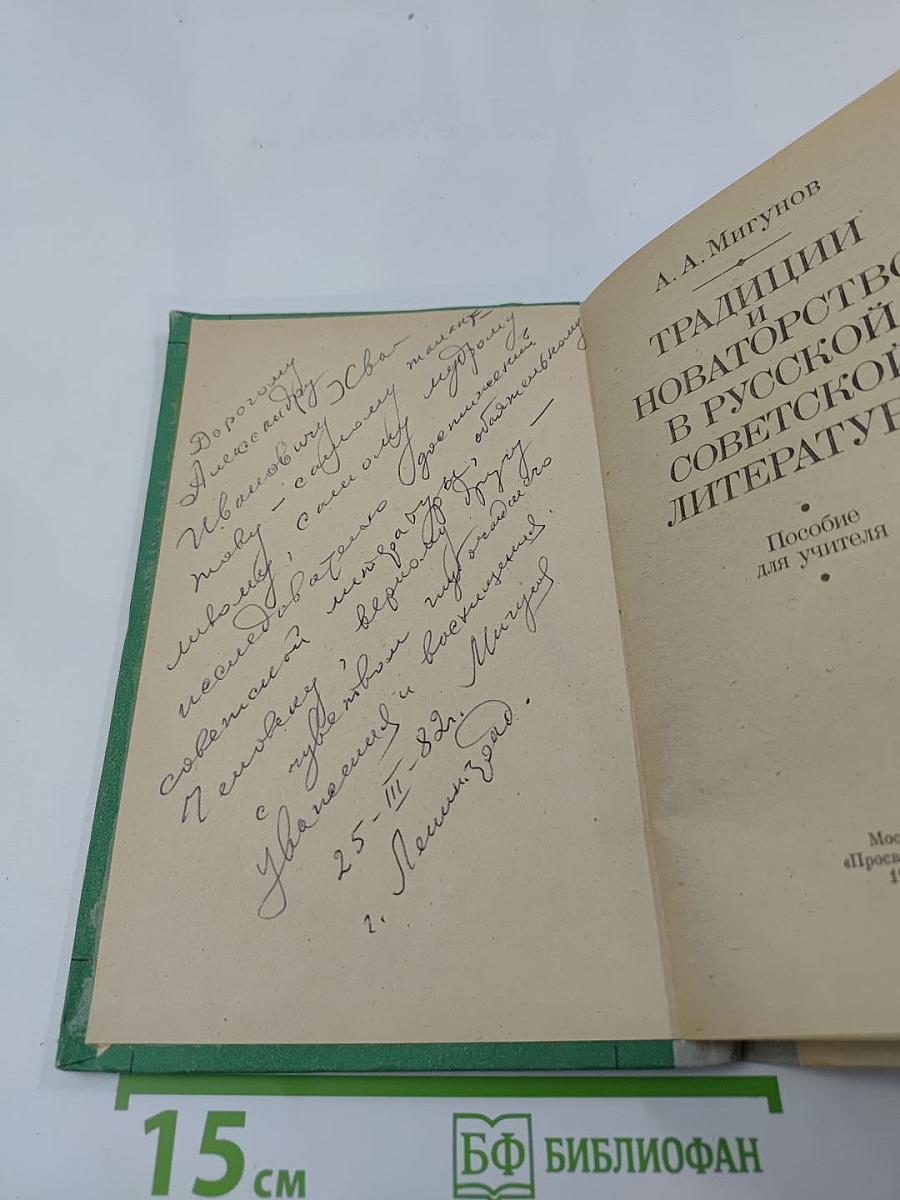 Дорогому
Александру
Ивановичу Хва-
тову – самому талант-
ливому, самому мудрому
исследователю достижений
советской литературы, обаятельному
Человеку, верному другу –
с чувством глубочайшего
уважения и восхищения.
25-III-82г. Мигунов
г. Ленинград.
А. А. Мигунов
ТРАДИЦИИ
И
НОВАТОРСТВО
В РУССКОЙ
СОВЕТСКОЙ
ЛИТЕРАТУР
Пособие
для учителя
Мос
«Просв
19
15 см
БФ БИБЛИОФАН